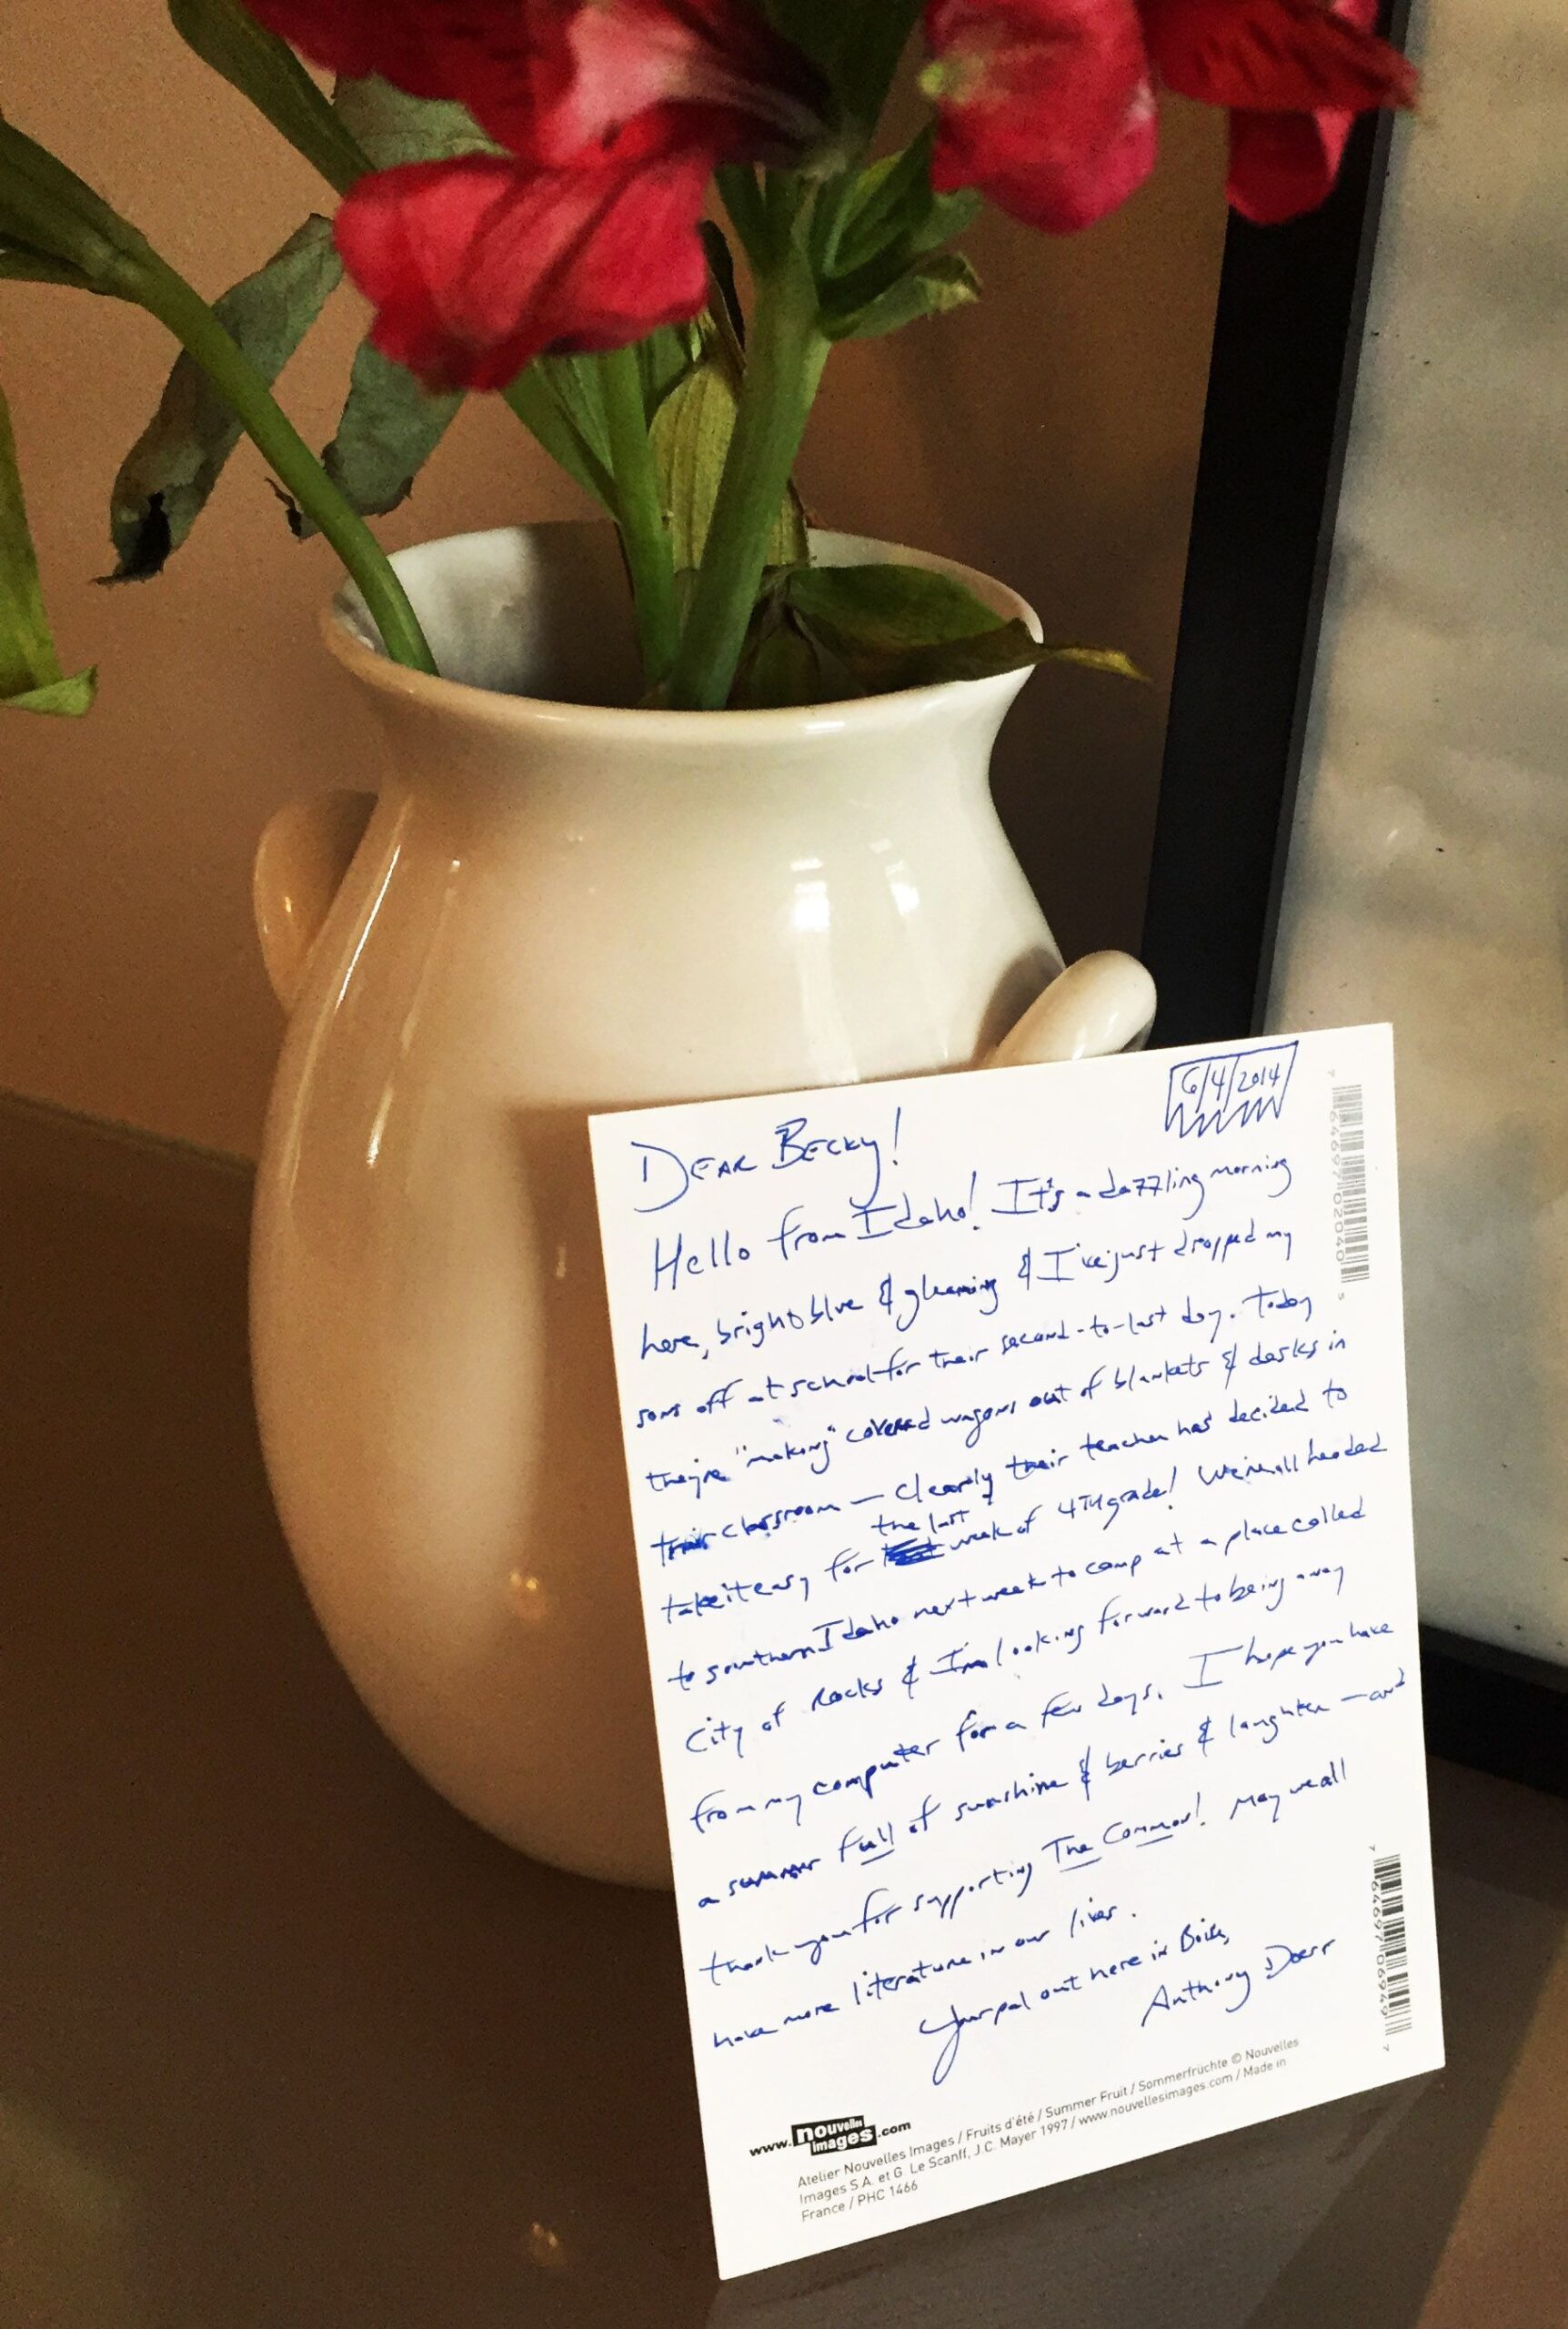 6/4/2014
DEAR BECKY!
Hello from Idaho! It's a dazzling morning
here, bright blue & gleaming & I've just dropped my
sons off at school for their second-to-last day. Today
they're "making" covered wagons out of blankets & desks in
their classroom — clearly their teacher has decided to
take it easy for the last week of 4TH grade! We're all headed
to southern Idaho next week to camp at a place called
City of Rocks & I'm looking forward to being away
from my computer for a few days. I hope you have
a summer full of sunshine & berries & laughter — and
thank you for supporting The Common! May we all
have more literature in our lives.
Your pal out here in Boise,
Anthony Doerr
www.nouvelles images.com
Atelier Nouvelles Images / Fruits d'été / Summer Fruit / Sommerfrüchte © Nouvelles
Images S.A. et G. Le Scanff, J.C. Mayer 1997 / www.nouvellesimages.com / Made in
France / PHC 1466
7 64697 02040 5
7 64697 06949 7